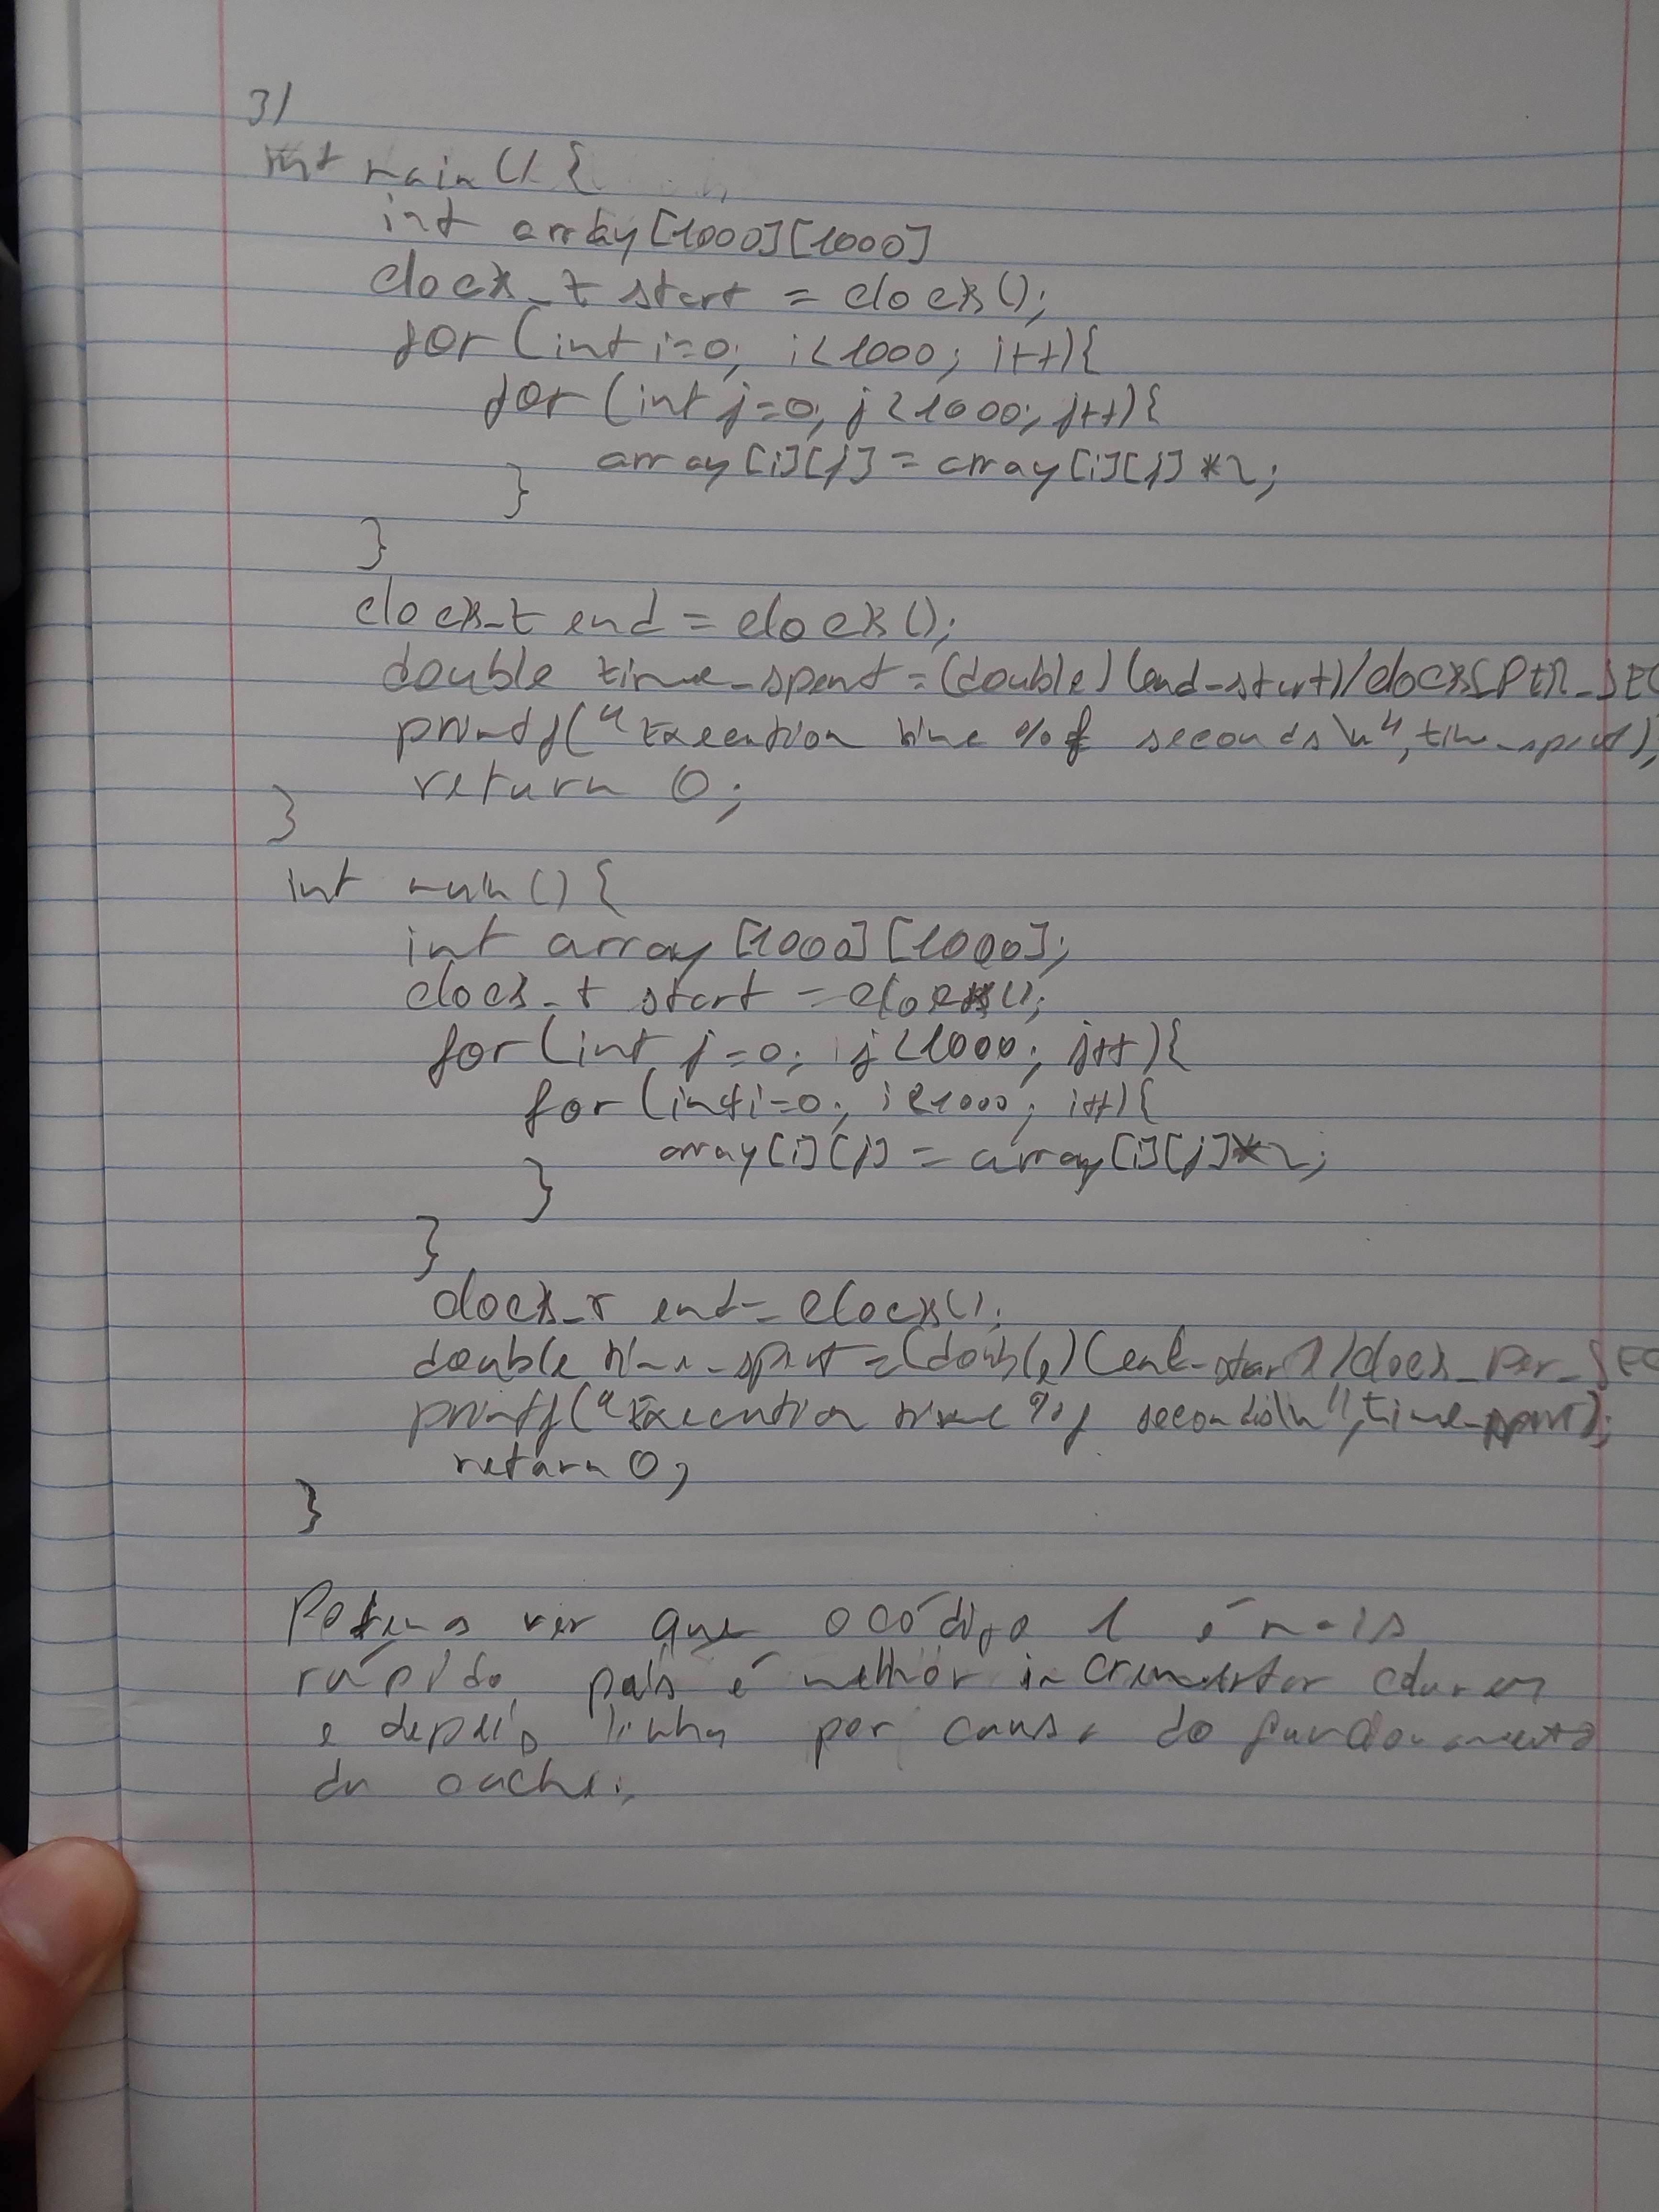 3)
int main() {
int array[1000][1000]
clock_t start = clock();
for (int i=0; i<1000; i++){
for (int j=0; j<1000; j++){
array[i][j] = array[i][j]*2;
}
}
clock_t end = clock();
double time_spent = (double)(end-start)/clocks_PER_SEC
printf("Execution time %f seconds\n", time_spent);
return 0;
}
int main() {
int array [1000][1000];
clock_t start = clock();
for (int j=0; j<1000; j++){
for (int i=0; i<1000; i++){
array[i][j] = array[i][j]*2;
}
}
clock_t end = clock();
double time_spent = (double)(end-start)/clock_Per_SEC
printf("Execution time %f seconds\n", time_spent);
return 0;
}
Podemos ver que o código 1 é mais
rápido, pois é melhor incrementar
e depois linha por causa do funcionamento
da cache.